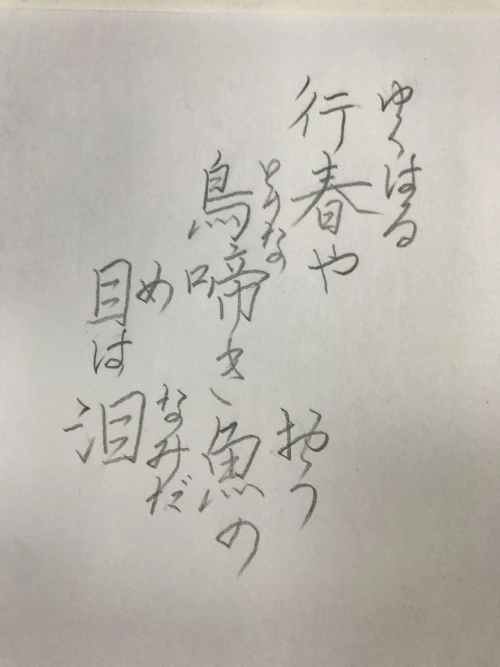 ゆくはる
行春や
とりな
おう
鳥啼き魚の
め
なみだ
目は泪